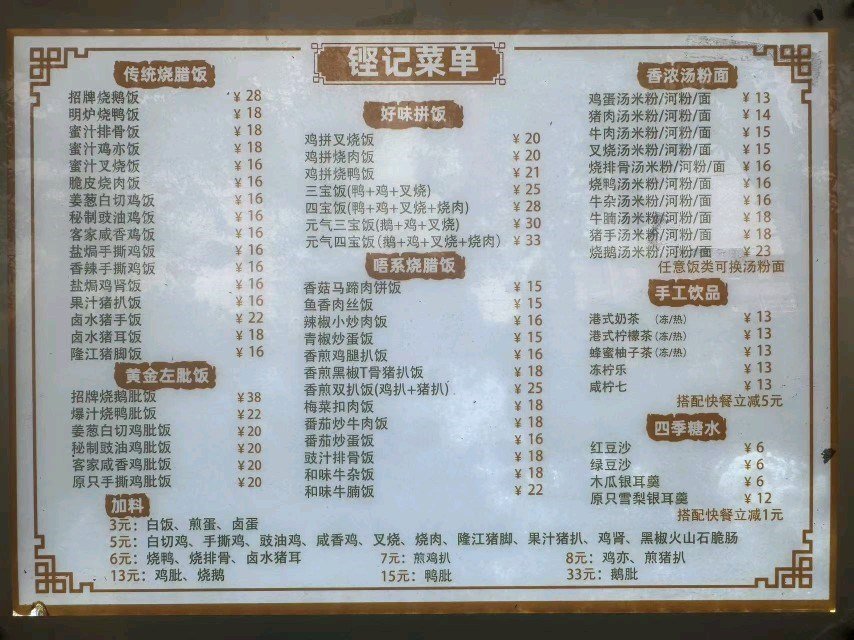 铿记菜单
传统烧腊饭
招牌烧鹅饭 ¥ 28
明炉烧鸭饭 ¥ 18
蜜汁排骨饭 ¥ 18
蜜汁鸡亦饭 ¥ 18
蜜汁叉烧饭 ¥ 16
脆皮烧肉饭 ¥ 16
姜葱白切鸡饭 ¥ 16
秘制豉油鸡饭 ¥ 16
客家咸香鸡饭 ¥ 16
盐焗手撕鸡饭 ¥ 16
香辣手撕鸡饭 ¥ 16
盐焗鸡肾饭 ¥ 16
果汁猪扒饭 ¥ 16
卤水猪手饭 ¥ 22
卤水猪耳饭 ¥ 18
隆江猪脚饭 ¥ 16
黄金左肶饭
招牌烧鹅肶饭 ¥38
爆汁烧鸭肶饭 ¥22
姜葱白切鸡肶饭 ¥20
秘制豉油鸡肶饭 ¥20
客家咸香鸡肶饭 ¥20
原只手撕鸡肶饭 ¥20
好味拼饭
鸡拼叉烧饭 ¥ 20
鸡拼烧肉饭 ¥ 20
鸡拼烧鸭饭 ¥ 21
三宝饭(鸭+鸡+叉烧) ¥ 25
四宝饭(鸭+鸡+叉烧+烧肉) ¥ 28
元气三宝饭(鹅+鸡+叉烧) ¥ 30
元气四宝饭(鹅+鸡+叉烧+烧肉) ¥ 33
唔系烧腊饭
香菇马蹄肉饼饭 ¥ 15
鱼香肉丝饭 ¥ 15
辣椒小炒肉饭 ¥ 16
青椒炒蛋饭 ¥ 15
香煎鸡腿扒饭 ¥ 16
香煎黑椒T骨猪扒饭 ¥ 18
香煎双扒饭(鸡扒+猪扒) ¥ 25
梅菜扣肉饭 ¥ 18
番茄炒牛肉饭 ¥ 18
番茄炒蛋饭 ¥ 16
豉汁排骨饭 ¥ 18
和味牛杂饭 ¥ 18
和味牛腩饭 ¥ 22
香浓汤粉面
鸡蛋汤米粉/河粉/面 ¥ 13
猪肉汤米粉/河粉/面 ¥ 14
牛肉汤米粉/河粉/面 ¥ 15
叉烧汤米粉/河粉/面 ¥ 15
烧排骨汤米粉/河粉/面 ¥ 16
烧鸭汤米粉/河粉/面 ¥ 16
牛杂汤米粉/河粉/面 ¥ 16
牛腩汤米粉/河粉/面 ¥ 18
猪手汤米粉/河粉/面 ¥ 18
烧鹅汤米粉/河粉/面 ¥ 23
任意饭类可换汤粉面
手工饮品
港式奶茶 (冻/热) ¥ 13
港式柠檬茶(冻/热) ¥ 13
蜂蜜柚子茶(冻/热) ¥ 13
冻柠乐 ¥ 13
咸柠七 ¥ 13
搭配快餐立减5元
四季糖水
红豆沙 ¥ 6
绿豆沙 ¥ 6
木瓜银耳羹 ¥ 6
原只雪梨银耳羹 ¥ 12
搭配快餐立减1元
加料
3元：白饭、煎蛋、卤蛋
5元：白切鸡、手撕鸡、豉油鸡、咸香鸡、叉烧、烧肉、隆江猪脚、果汁猪扒、鸡肾、黑椒火山石脆肠
6元：烧鸭、烧排骨、卤水猪耳 7元：煎鸡扒 8元：鸡亦、煎猪扒
13元：鸡肶、烧鹅 15元：鸭肶 33元：鹅肶